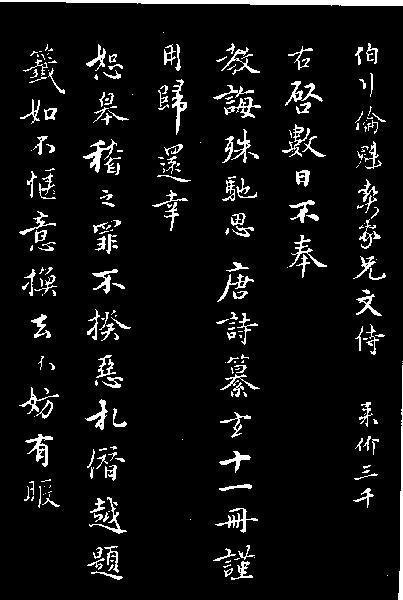 伯川倫魁契家兄文侍　来价三千
右啓數日不奉
教誨殊馳思唐詩纂玄十一冊謹
用歸還幸
恕舉稽之罪不揆惡札僭越題
籤如不愜意換去不妨有暇